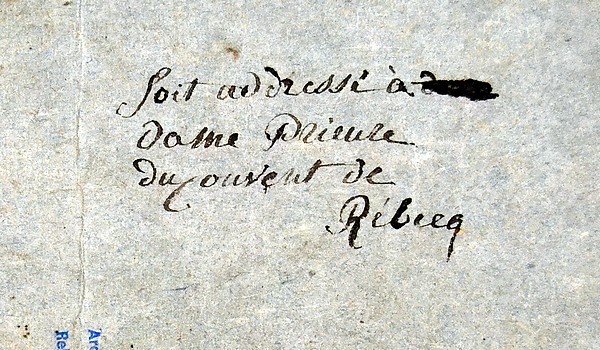 Soit addressé à
dame Prieure
du Couvent de
Rébecq
Arc
Rel